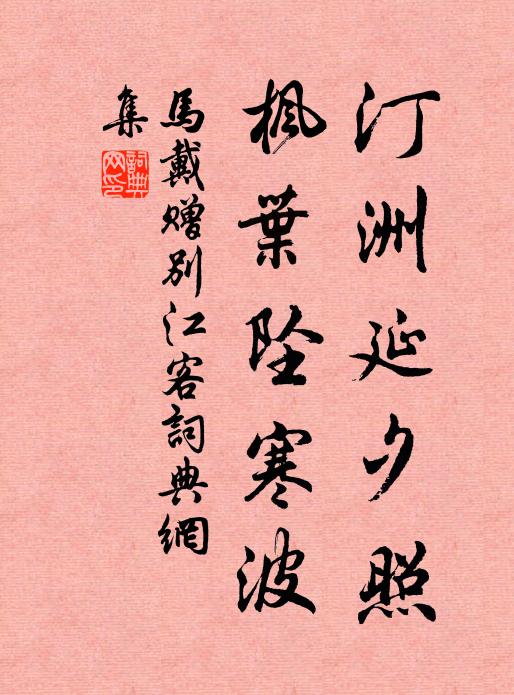 汀洲延夕照
楓葉墜寒波
馬戴贈別江客詞典網
集
詞典网印